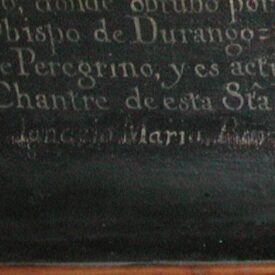 donde obtubo por
Obispo de Durango=
e Peregrino, y es act
Chantre de esta Sta
Ignacio Maria